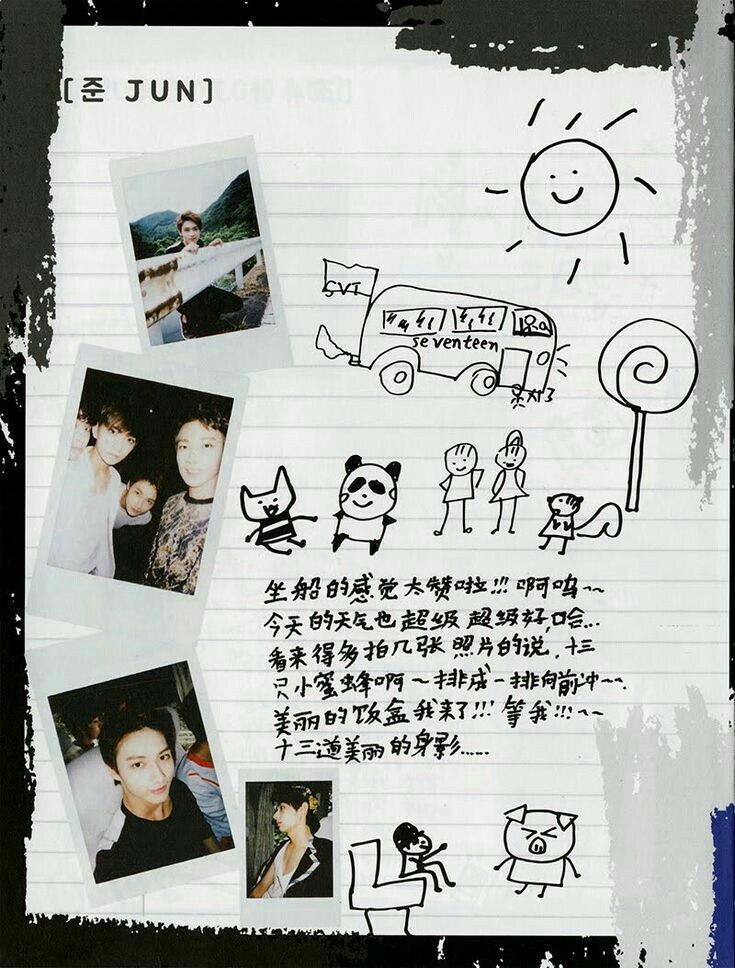 [준 JUN]
SVT
seventeen
坐船的感觉太赞啦!!! 啊呜~~
今天的天气也超级超级好,哈...
看来得多拍几张照片的说,十三
只小蜜蜂啊~排成一排向前冲~~
美丽的饭盒我来了!!! 等我!!!~~
十三道美丽的身影......